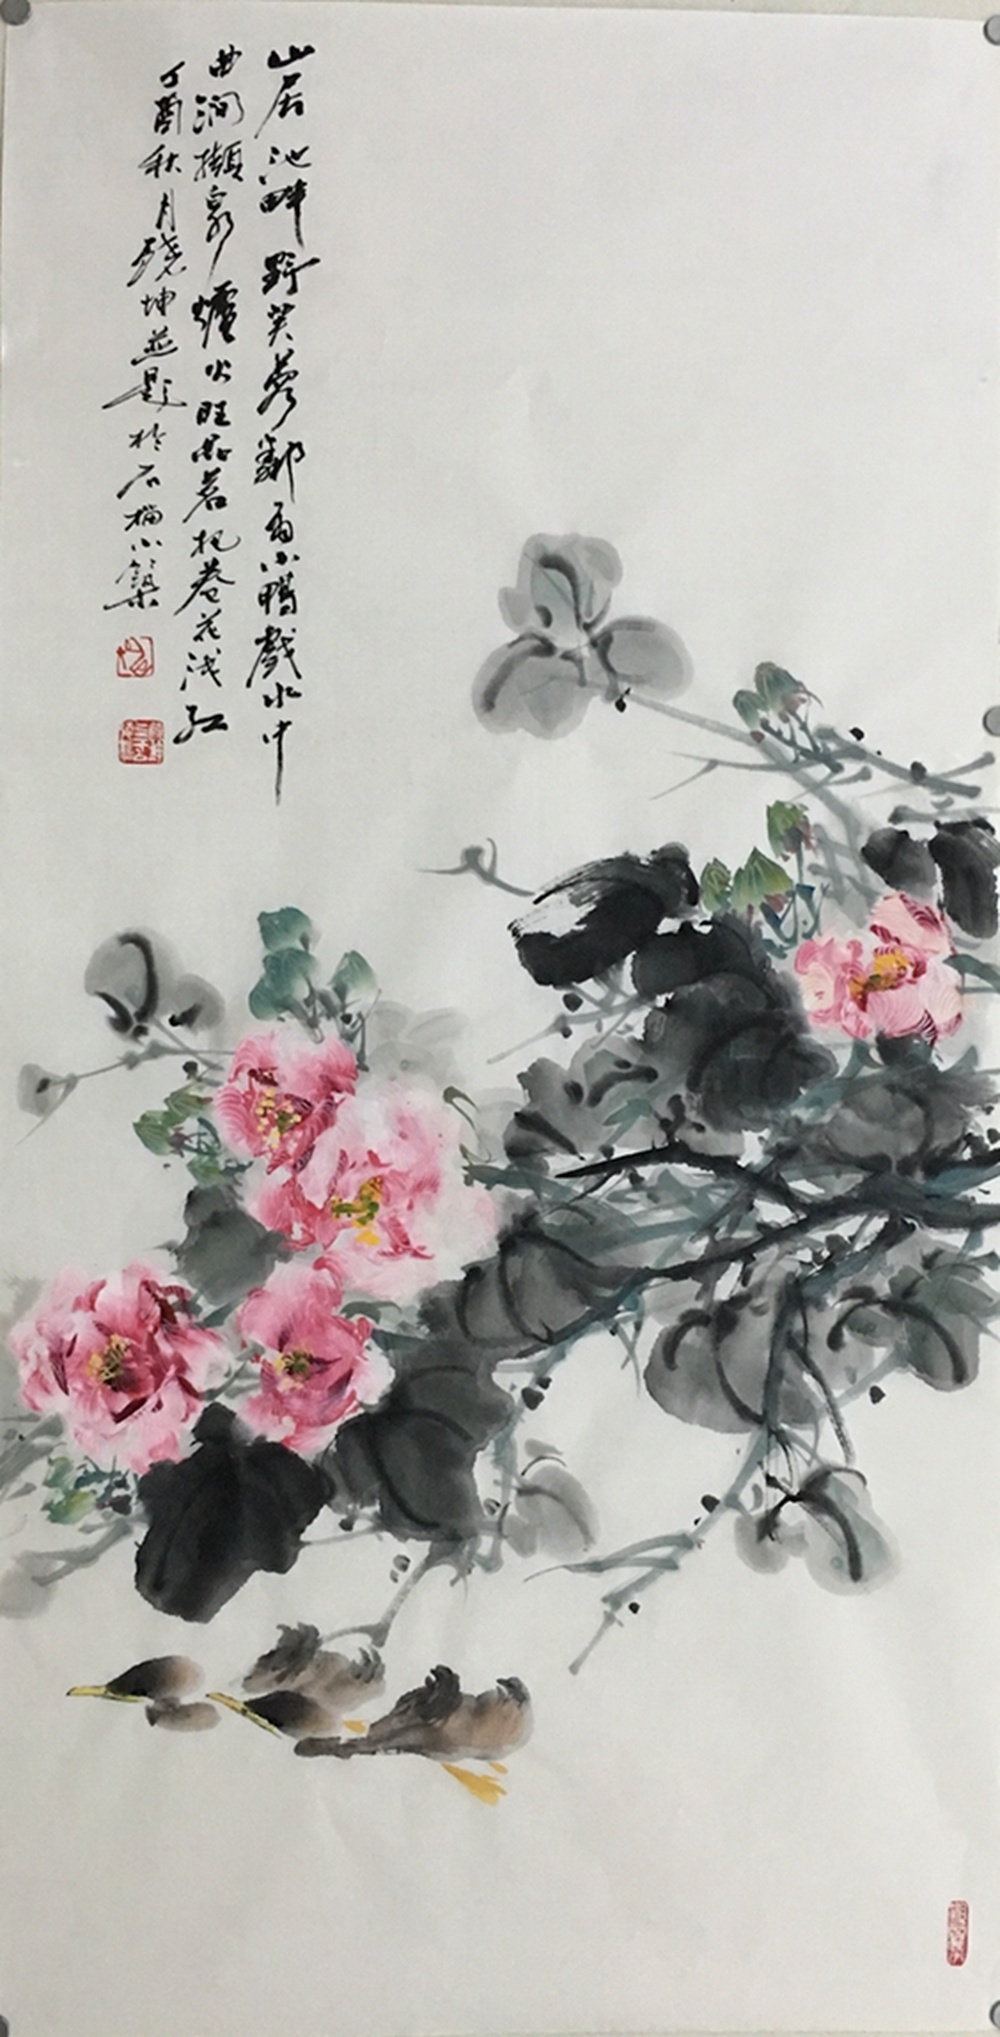 山居池畔野芙蓉鄰角小鴨戲水中
曲澗擷泉爐火旺品茗把卷花淺紅
丁酉秋月曉坤並題於石榴小築